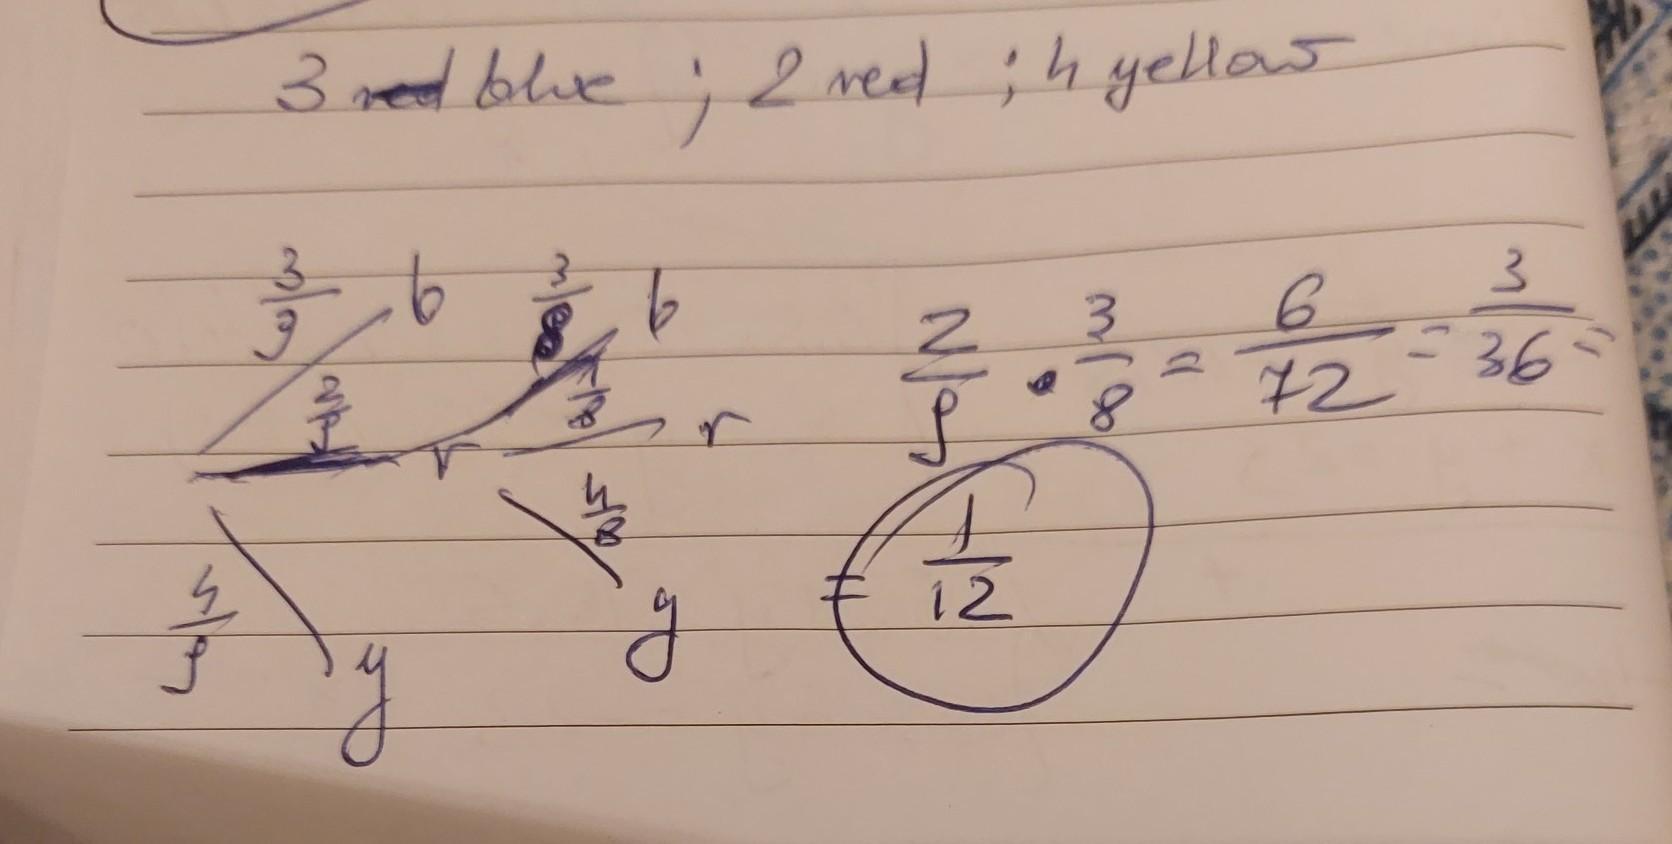 3 blue ; 2 red ; 4 yellow
3/9 b 3/8 b
2/9 r 1/8 r
4/9 y 4/8 y
2/9 · 3/8 = 6/72 = 3/36 =
= 1/12